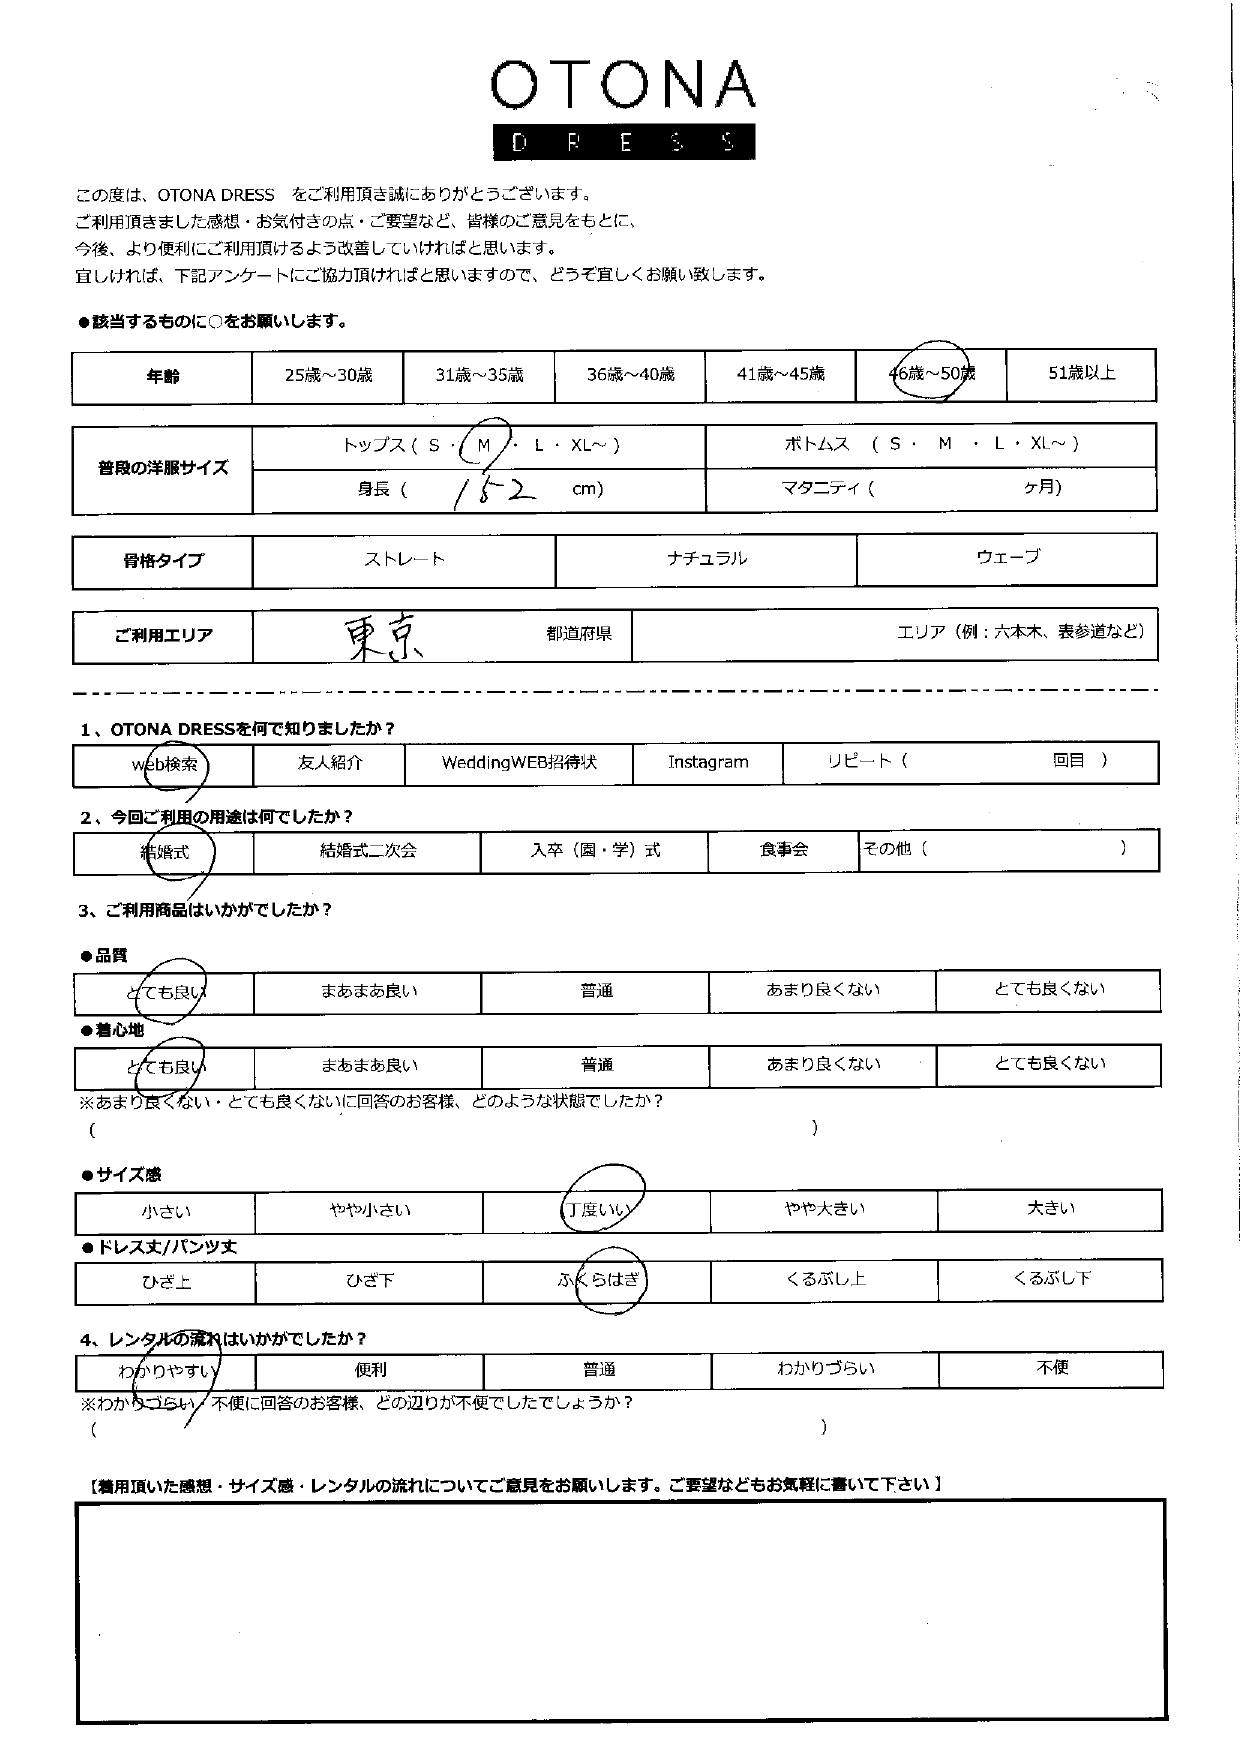 OTONA
DRESS
この度は、OTONA DRESS　をご利用頂き誠にありがとうございます。
ご利用頂きました感想・お気付きの点・ご要望など、皆様のご意見をもとに、
今後、より便利にご利用頂けるよう改善していければと思います。
宜しければ、下記アンケートにご協力頂ければと思いますので、どうぞ宜しくお願い致します。
●該当するものに○をお願いします。
年齢 25歳～30歳 31歳～35歳 36歳～40歳 41歳～45歳 46歳～50歳 51歳以上
普段の洋服サイズ トップス ( S ・ M ・ L ・ XL～ ) ボトムス ( S ・ M ・ L ・ XL～ )
身長 ( 152 cm) マタニティ ( ヶ月)
骨格タイプ ストレート ナチュラル ウェーブ
ご利用エリア 東京 都道府県 エリア（例：六本木、表参道など）
1、OTONA DRESSを何で知りましたか？
web検索 友人紹介 WeddingWEB招待状 Instagram リピート（ 回目 ）
2、今回ご利用の用途は何でしたか？
結婚式 結婚式二次会 入卒（園・学）式 食事会 その他（ ）
3、ご利用商品はいかがでしたか？
●品質
とても良い まあまあ良い 普通 あまり良くない とても良くない
●着心地
とても良い まあまあ良い 普通 あまり良くない とても良くない
※あまり良くない・とても良くないに回答のお客様、どのような状態でしたか？
( )
●サイズ感
小さい やや小さい 丁度いい やや大きい 大きい
●ドレス丈/パンツ丈
ひざ上 ひざ下 ふくらはぎ くるぶし上 くるぶし下
4、レンタルの流れはいかがでしたか？
わかりやすい 便利 普通 わかりづらい 不便
※わかりづらい・不便に回答のお客様、どの辺りが不便でしたでしょうか？
( )
【着用頂いた感想・サイズ感・レンタルの流れについてご意見をお願いします。ご要望などもお気軽に書いて下さい】